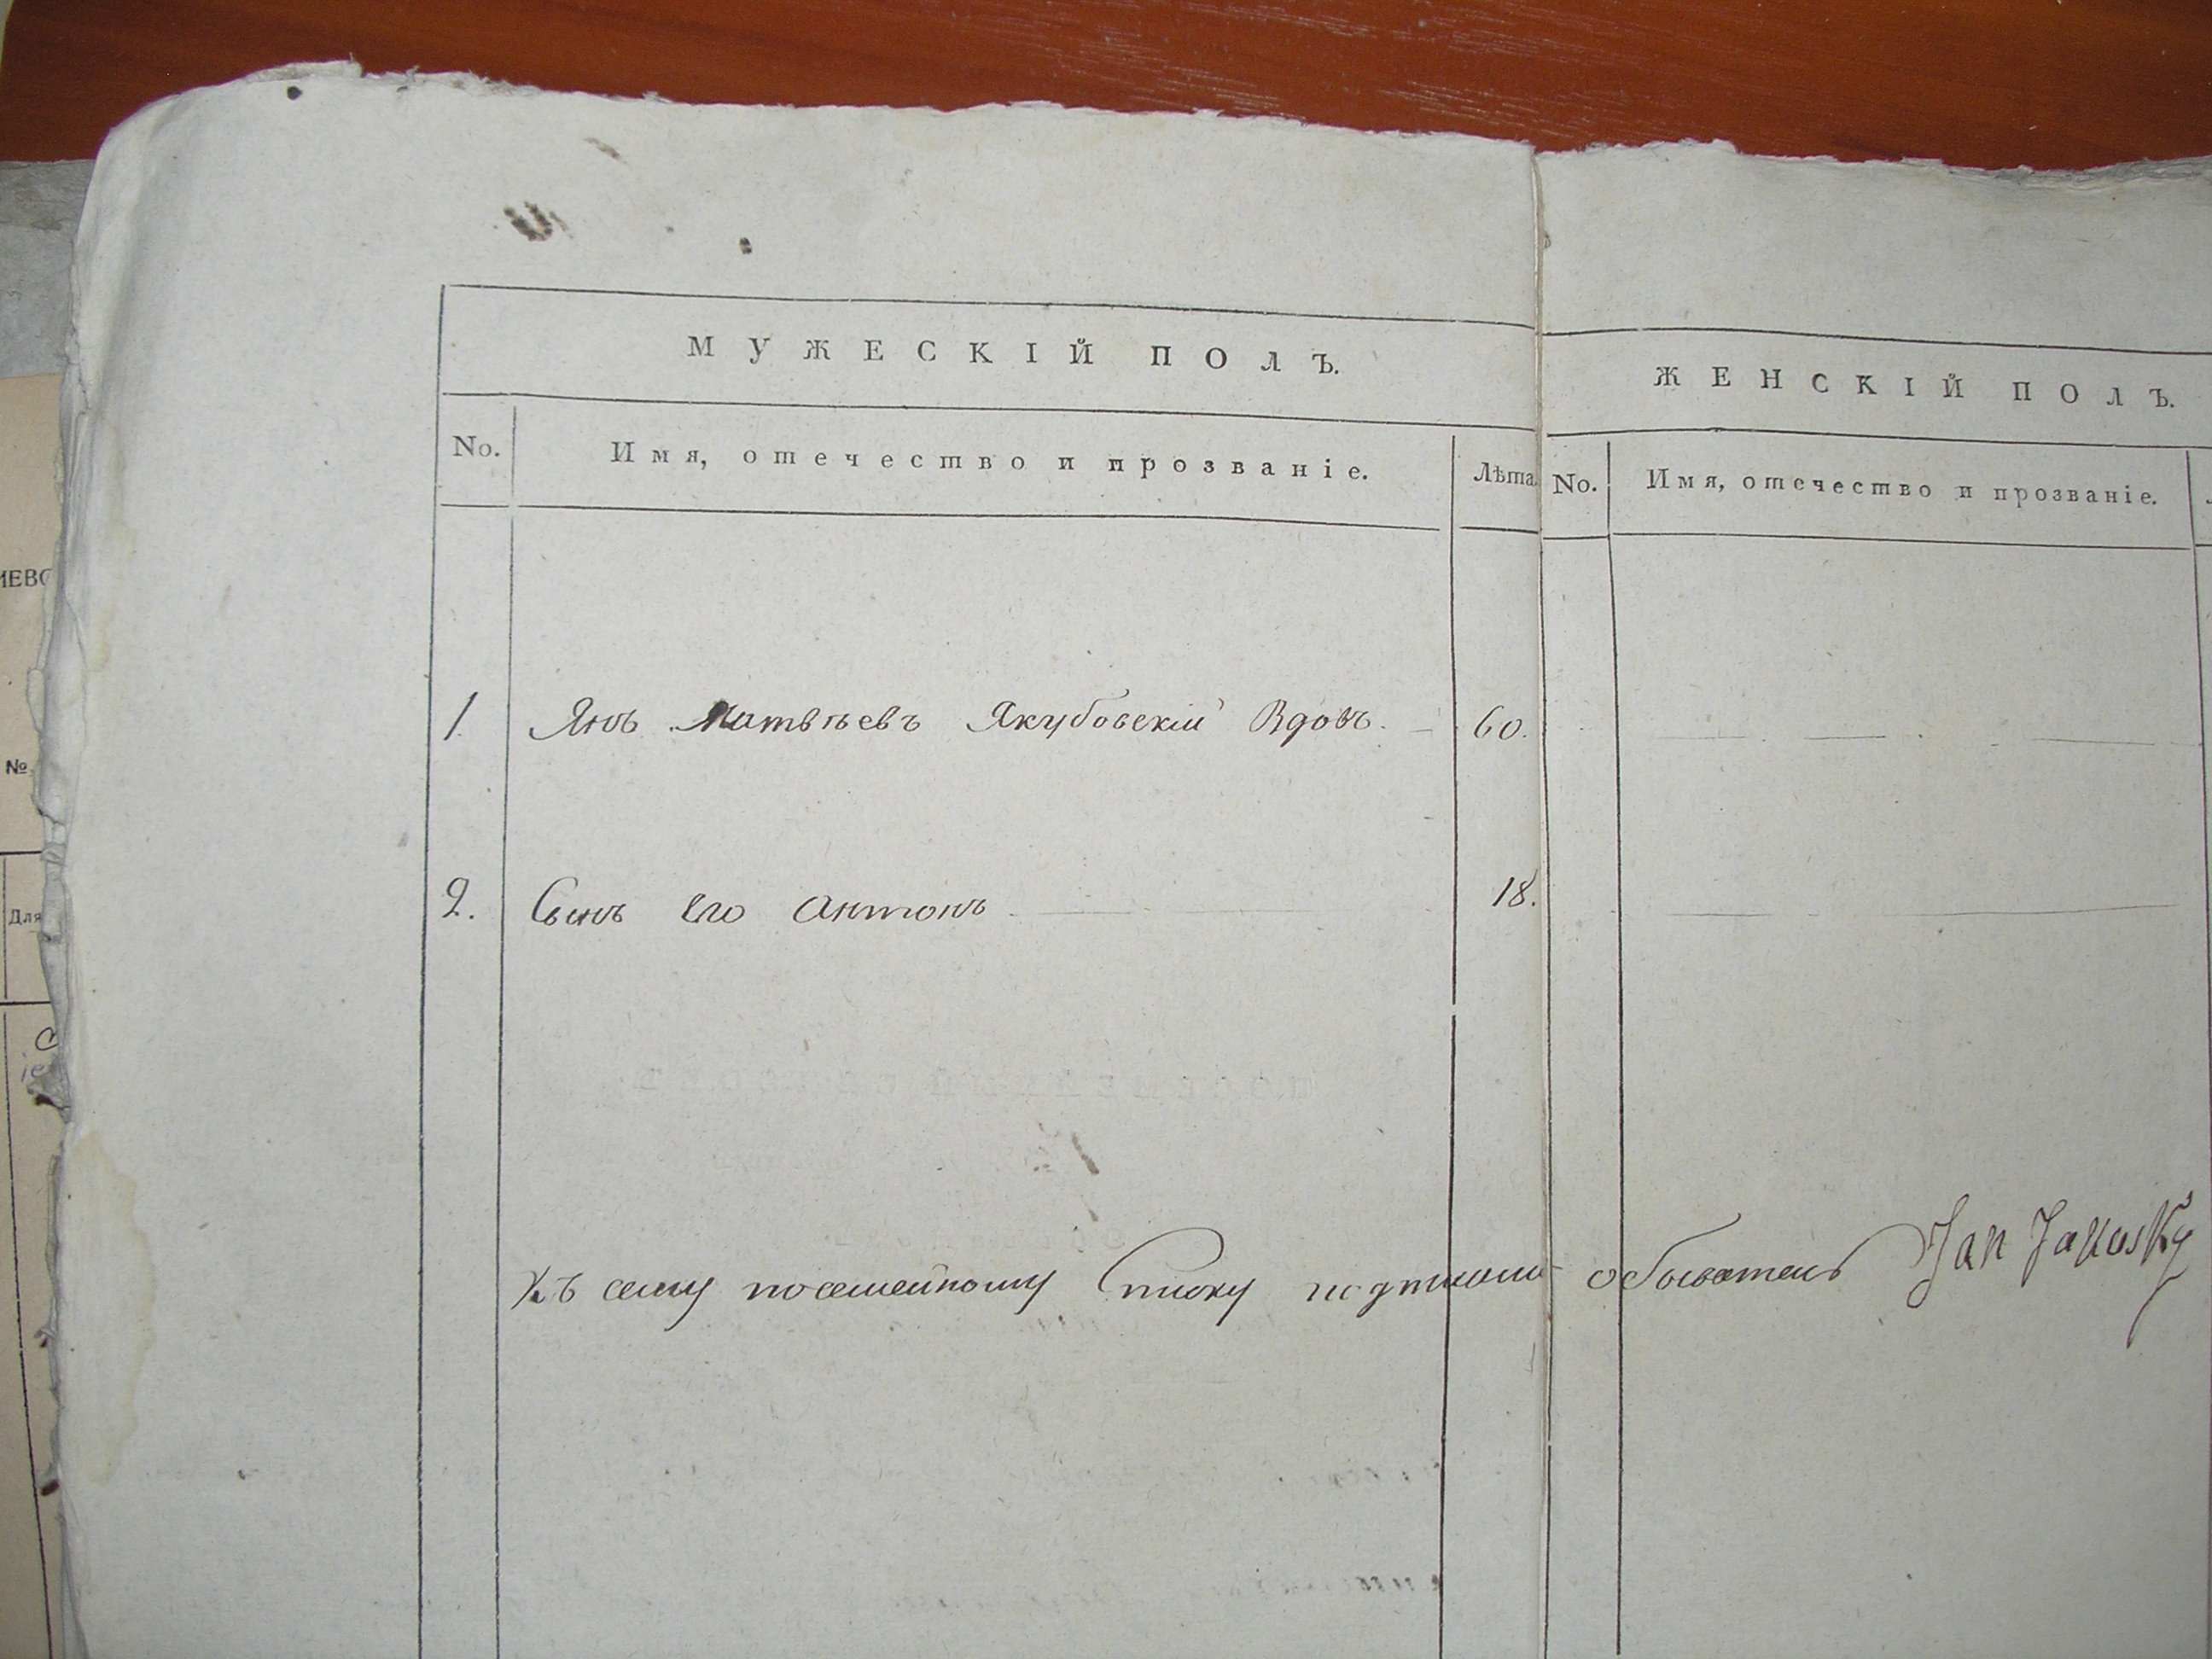 МУЖЕСКІЙ ПОЛЪ.
ЖЕНСКІЙ ПОЛЪ.
No. Имя, отечество и прозваніе. Лѣта. No. Имя, отечество и прозваніе.
1. Янъ Матвѣевъ Якубовскій Вдовъ. 60.
2. Сынъ его Антонъ 18.
Къ сему посемейному списку подписался обыватель Jan
№
Для